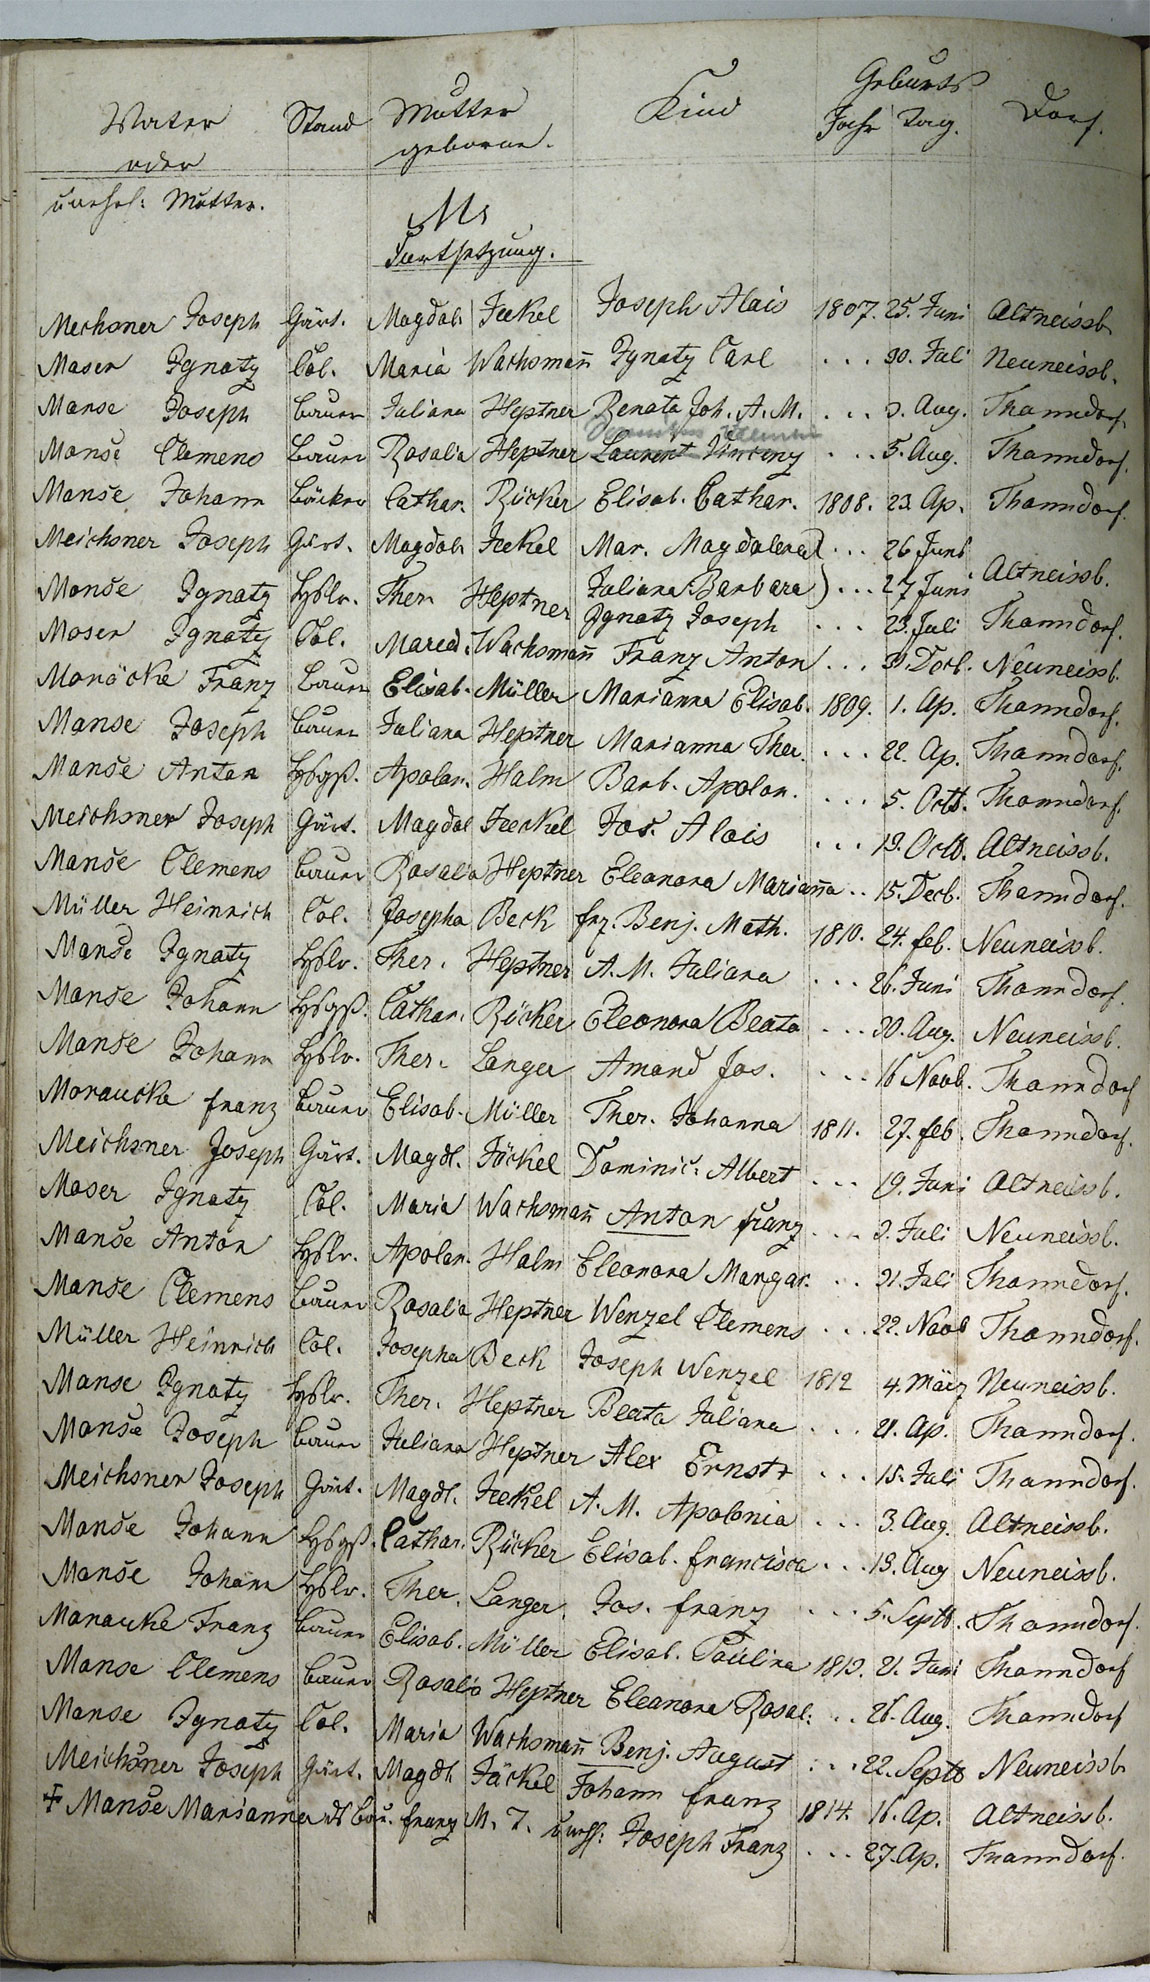 Vater Stand Mutter Kind Geburts Dorf.
oder geborne. Jahr Tag.
unehel: Mutter.
M
Fortsetzung.
Meichsner Joseph Gärt. Magdal. Jeckel Joseph Alois 1807. 25. Juni Altneissb.
Moser Ignatz Col. Maria Wachsmañ Ignatz Carl ... 30. Juli Neuneissb.
Manse Joseph Bauer Juliana Heptner Renata Joh. A. M. ... 3. Aug. Thanndorf.
Manse Clemens Bauer Rosalia Heptner Laurent Vincenz ... 5. Aug. Thanndorf.
Manse Johann Bäcker Cathar. Rücker Elisab. Cathar. 1808. 23. Ap. Thanndorf.
Meichsner Joseph Gärt. Magdal. Jeckel Mar. Magdalena ... 26 Juni
Juliana Barbara ... 27 Juni Altneissb.
Manse Ignatz Hslr. Ther. Heptner Ignatz Joseph ... 23. Juli Thanndorf.
Moser Ignatz Col. Wachsmañ Franz Anton ... Decb. Neuneissb.
Moräcke Franz Bauer Elisab. Müller Marianna Elisab. 1809. 1. Ap. Thanndorf.
Manse Joseph Bauer Juliana Heptner Marianna Ther. ... 22. Ap. Thanndorf.
Manse Anton Hsgß. Apolon. Halm Barb. Apolon. ... 5. Octb. Thanndorf.
Meichsner Joseph Gärt. Magdal Jeckel Jos. Alois ... 19. Octb. Altneissb.
Manse Clemens Bauer Rosalia Heptner Eleonora Mariaña .. 15. Decb. Thanndorf.
Müller Heinrich Col. Josepha Beck frz. Benj. Math. 1810. 24. feb. Neuneissb.
Manse Ignatz Hslr. Ther. Heptner A. M. Juliana ... 26. Juni Thanndorf.
Manse Johann Hsgß. Cathar. Rücker Eleonora Beata ... 30. Aug. Neuneissb.
Manse Johann Hslr. Ther. Langer Amand Jos. ... 16 Novb. Thanndorf
Moraucke franz Bauer Elisab. Müller Ther. Johanna 1811. 27. feb. Thanndorf.
Meichsner Joseph Gärt. Magdl. Jäckel Dominic. Albert ... 19. Juni Altneissb.
Moser Ignatz Col. Maria Wachsmañ Anton franz ... 3. Juli Neuneissb.
Manse Anton Hslr. Apolon. Halm Eleonora Margar. ... 31. Juli Thanndorf.
Manse Clemens Bauer Rosalia Heptner Wenzel Clemens ... 22. Novb Thanndorf.
Müller Heinrich Col. Josepha Beck Joseph Wenzel 1812 4. März Neuneissb.
Manse Ignatz Hslr. Ther. Heptner Beata Juliana ... 21. Ap. Thanndorf.
Manse Joseph Bauer Juliana Heptner Alex Ernst ... 15. Juli Thanndorf.
Meichsner Joseph Gärt. Magdl. Jeckel A. M. Apolonia ... 3. Aug. Altneissb.
Manse Johann Hsgß. Cathar. Rücker Elisab. francisca ... 19. Aug Neuneissb.
Manse Johann Hslr. Ther. Langer Jos. franz ... 5. Septb. Thanndorf.
Manaucke Franz Bauer Elisab. Müller Elisab. Paulina 1813. 21. Juni Thanndorf
Manse Clemens Bauer Rosalia Heptner Eleonora Rosal. .. 26. Aug. Thanndorf
Manse Ignatz Col. Maria Wachsmañ Benj. August ... 22. Septb Neuneissb.
Meichsner Joseph Gärt. Magdl. Jäckel Johann franz 1814. 16. Ap. Altneissb.
Manse Marianna ds Bau. franz M. T. Joseph Franz ... 27. Ap. Thanndorf.